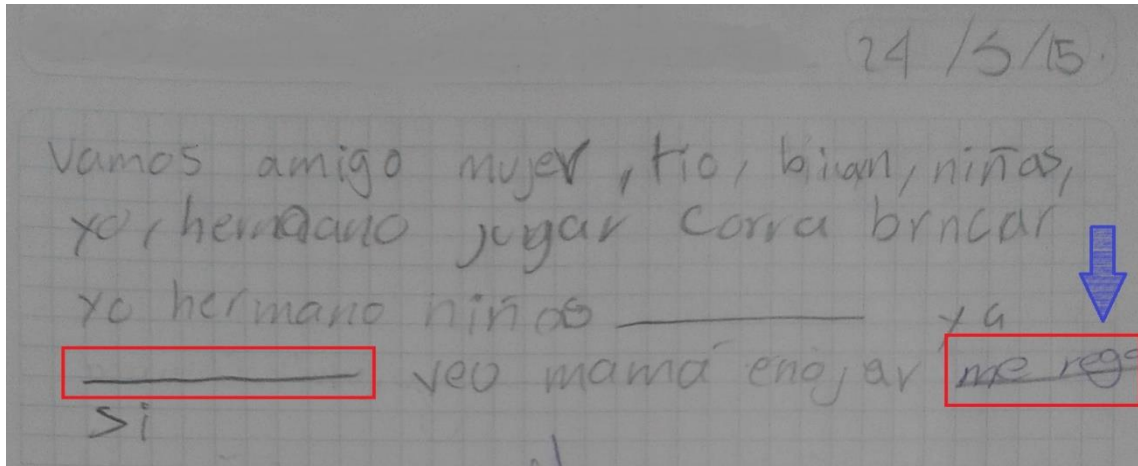 24 /5/15.
Vamos amigo mujer, tio, bivan, niñas,
yo, hermano jugar corra brncar
yo hermano niños ________ ya
________ veo mamá enojar me rega
si